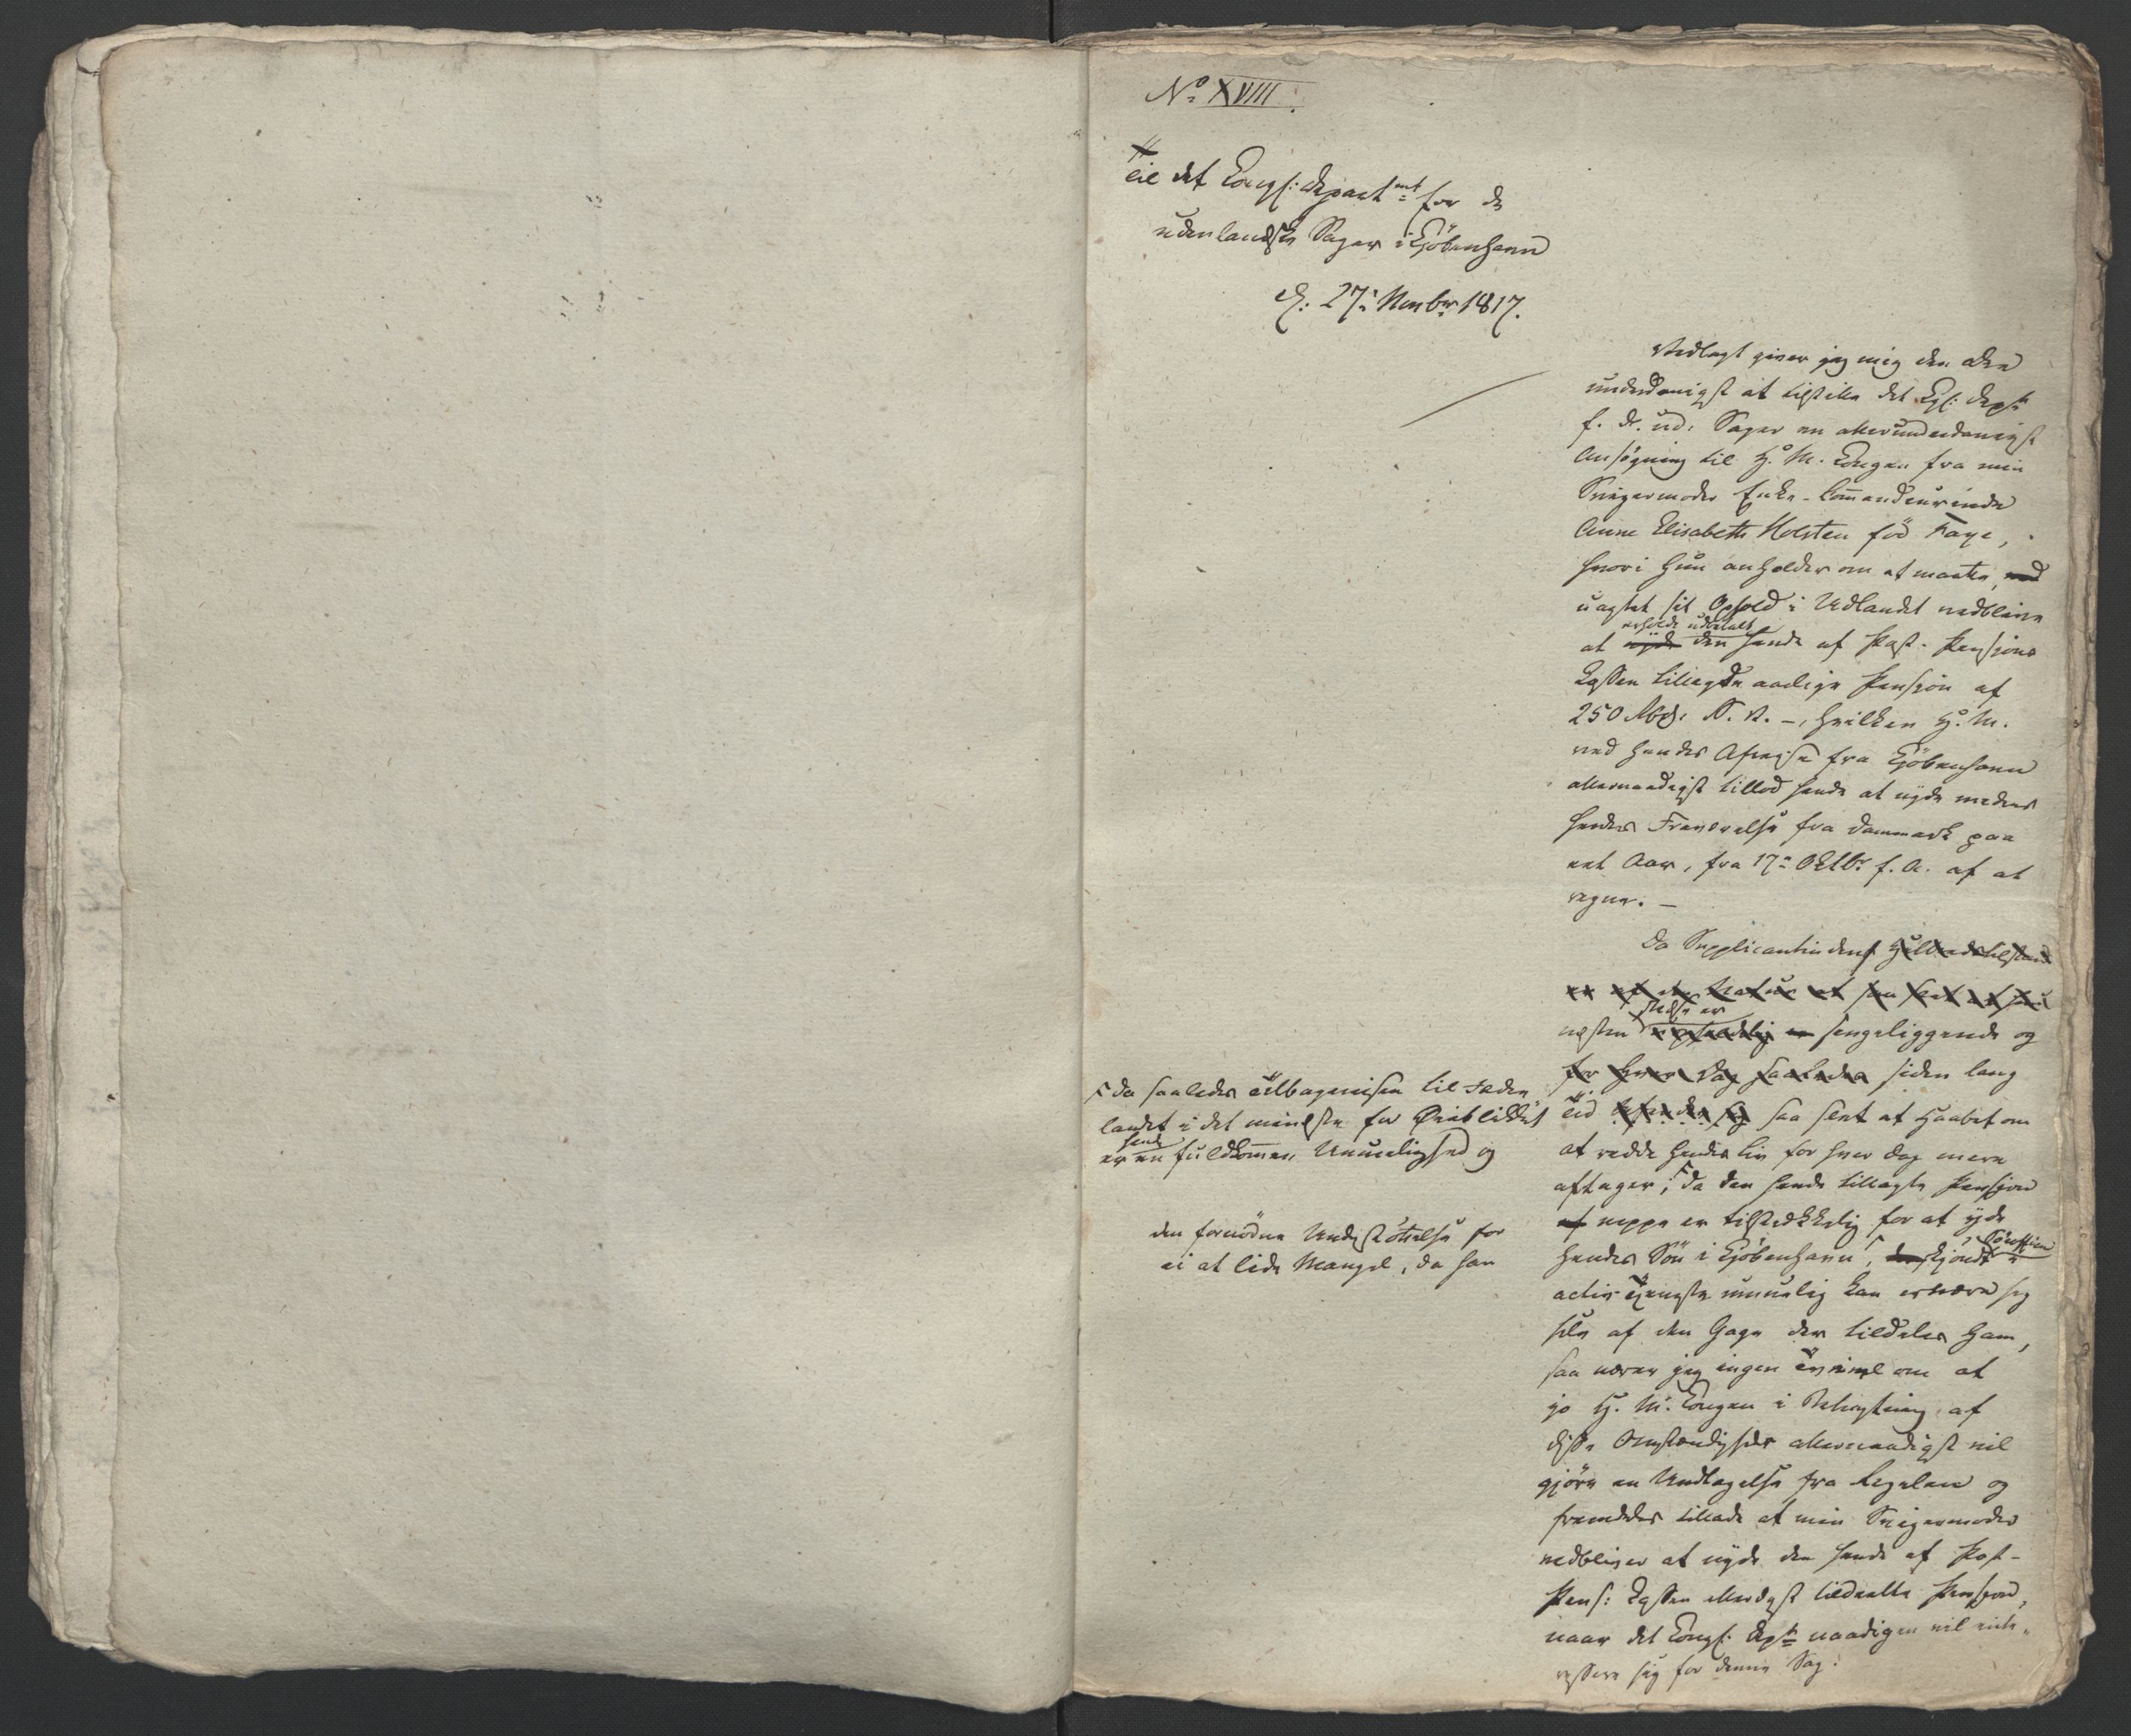 No XVIII.
Til det Kongl: Departmt for de
udenlandske Sager i Kjöbenhavn
d: 27: Novbr 1817.
Vedlagt giver jeg mig den Ære
underdanigst at tilstille det Kgl: Dept
f. d. ud: Sager en allerunderdanigst
Ansøgning til H. M. Kongen fra min
Svigermoder Enke-Commandeurinde
Anne Elisabeth Holsten fød Faye,
hvori hun anholder om at maatte, med
uagtet sit Ophold i Udlandet vedblive
erholde udbetalt
at nyde den hende af Post-Pensions
Kassen tillagde aarlige Pension af
250 Rbd. N. V. –, hvilken H. M.
ved hendes Afreise fra Kjöbenhavn
allernaadigst tillod hende at nyde medens
hendes Fraværelse fra Danmark paa
eet Aar, fra 17: Octbr. f. A. af at
regne. –
Da Supplicantindens Helbredstilstand
er af den Natur at
stedse er
næsten sengeliggende og
for hver Dag saaledes siden lang
Tid befinder sig saa slet at Haabet om
at redde hendes Liv for hver Dag mere
aftager; da den hende tillagte Pension
af neppe er tilstrækkelig for at yde
hendes Søn i Kjöbenhavn, der skjøndt Söofficier i
activ Tjeneste umuelig kan ernære sig
selv af den Gage der tildeles ham,
saa nærer jeg ingen Tvivl om at
jo H. M. Kongen i Betragtning af
disse Omstændigheder allernaadigst vil
gjöre en Undtagelse fra Regelen og
fremdeles tillade at min Svigermoder
vedbliver at nyde den hende af Post-
Pens: Kassen allerndgst tildeelte Pension,
naar det Kongl. Dept naadigen vil inte-
ressere sig for denne Sag.
da saaledes Tilbagereisen til Fædre-
landet i det mindste for Øieblikket
hende
er en fuldkommen Umuelighed og
den fornødne Understöttelse for
ei at lide Mangel, da han